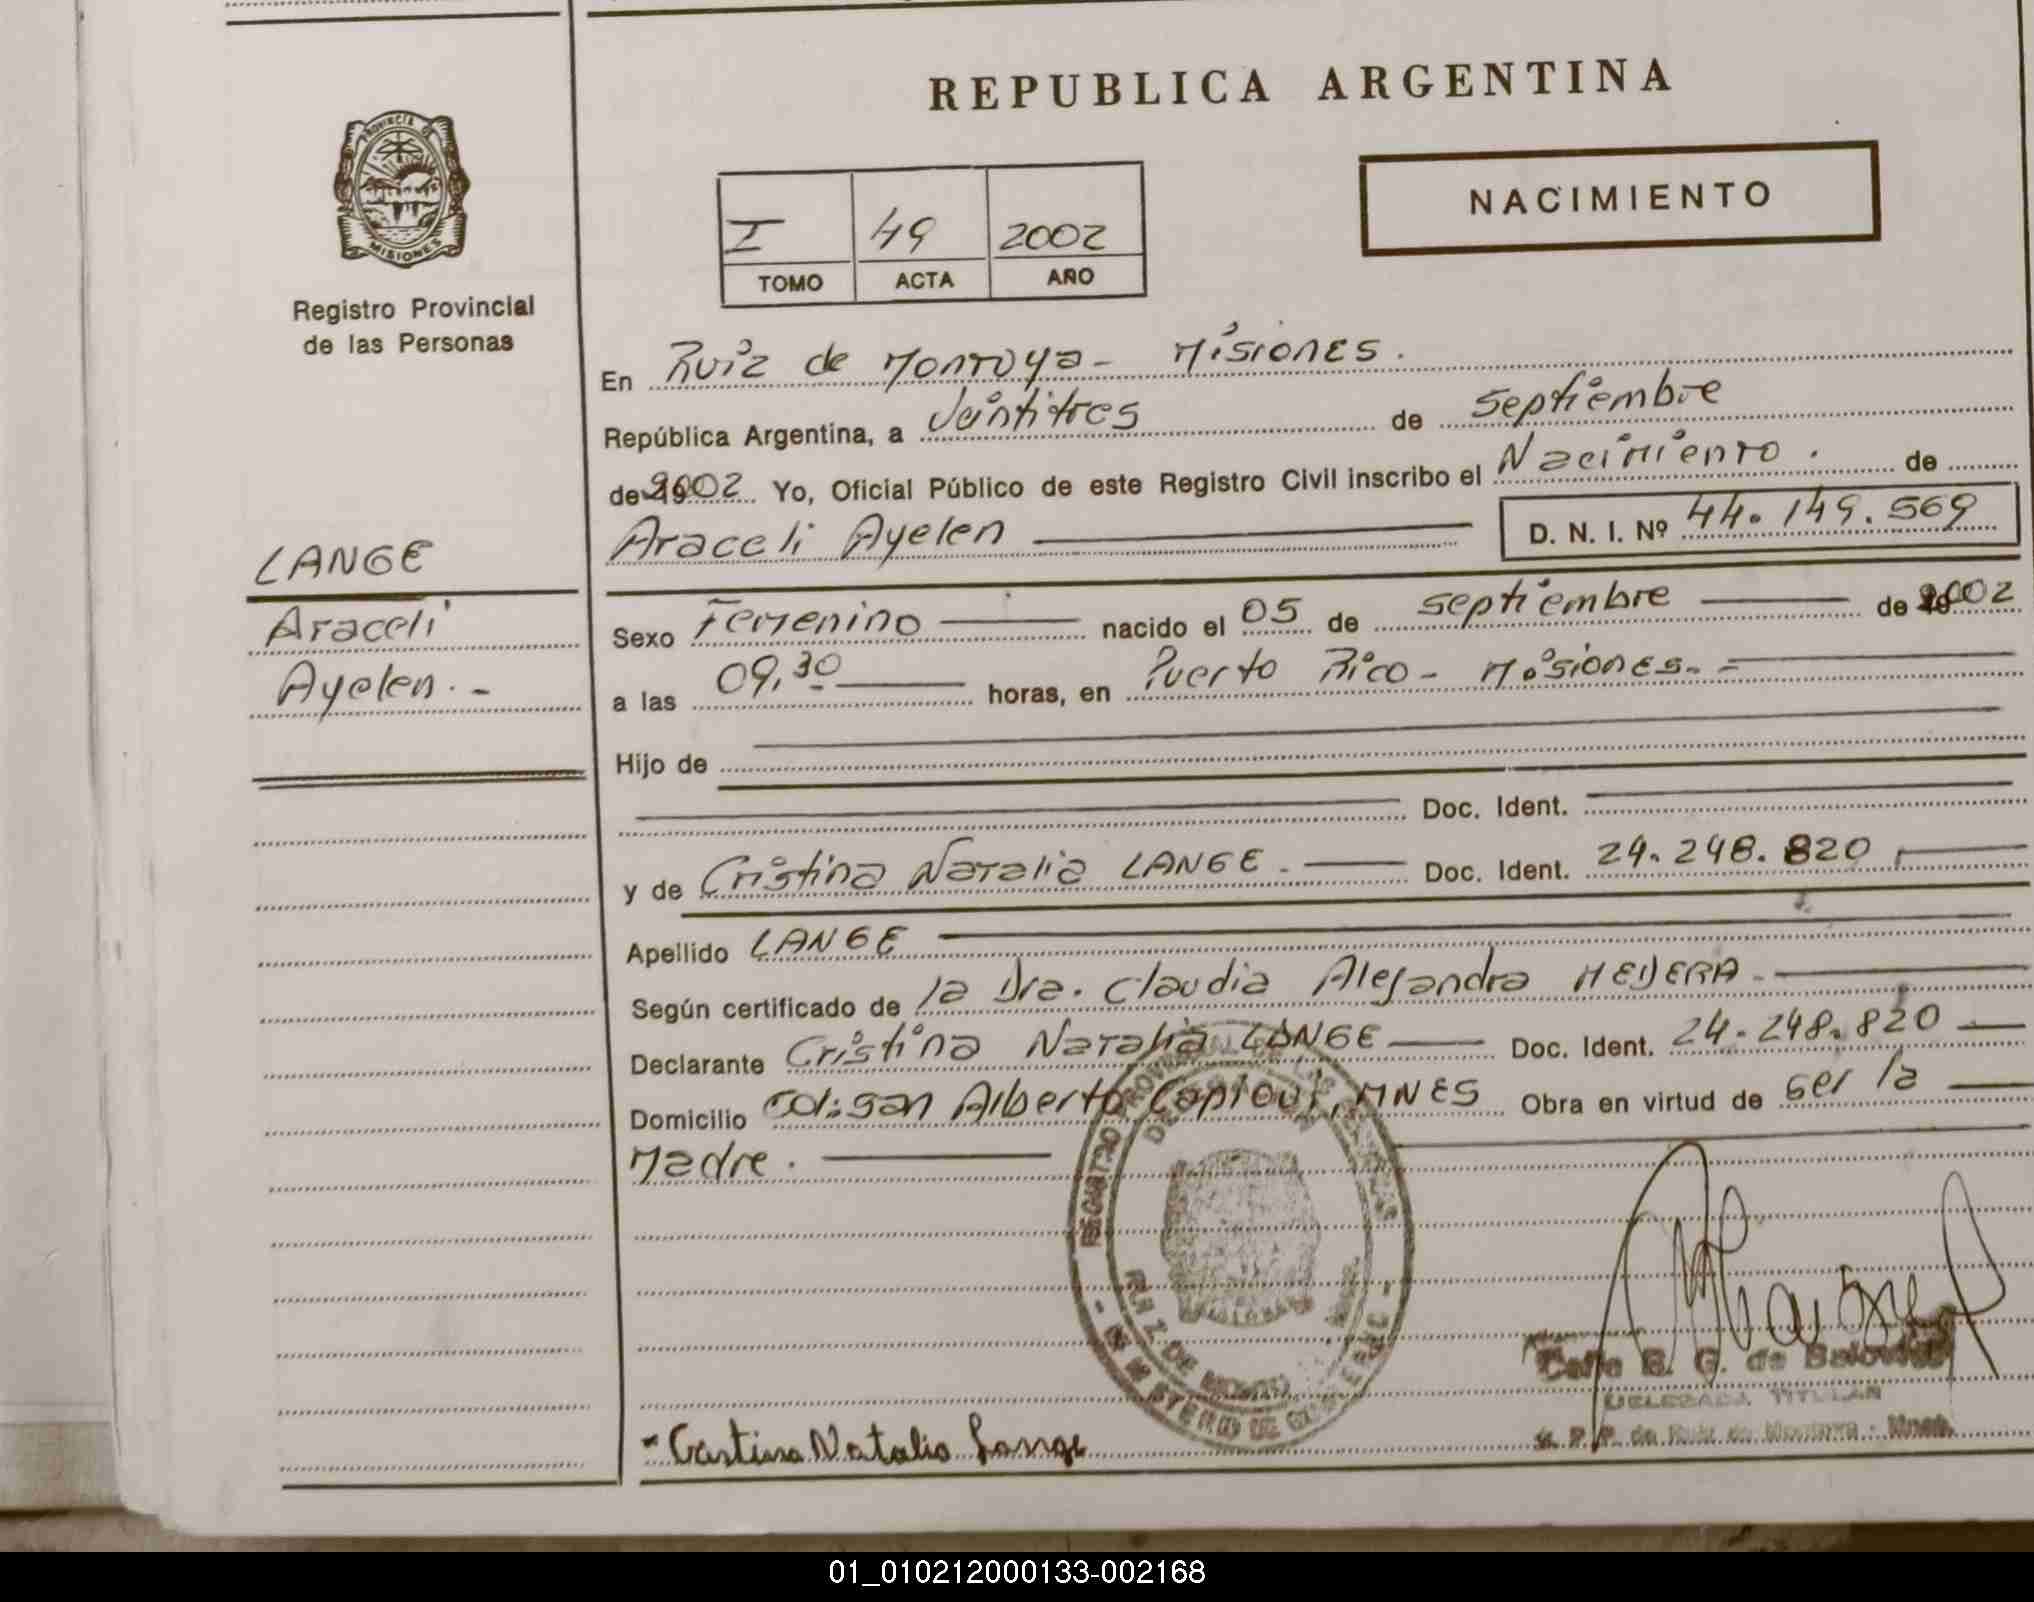 REPUBLICA ARGENTINA
PROVINCIA DE
MISIONES
Registro Provincial
de las Personas
NACIMIENTO
I 49 2002
TOMO ACTA AÑO
En Ruiz de Montoya - Misiones.
República Argentina, a Veintitres de septiembre
de 2002 Yo, Oficial Público de este Registro Civil inscribo el Nacimiento. de
Araceli Ayelen D. N. I. Nº 44.149.569
LANGE
Araceli
Ayelen.-
Sexo Femenino nacido el 05 de septiembre de 2002
a las 09,30 horas, en Puerto Rico - Misiones.-
Hijo de
Doc. Ident.
y de Cristina Natalia LANGE.- Doc. Ident. 24.248.820
Apellido LANGE
Según certificado de la Dra. Claudia Alejandra
Declarante Cristina Natalia LANGE Doc. Ident. 24.248.820
Domicilio Alberto MNES Obra en virtud de ser la
Madre.
REGISTRO PROVINCIAL DE LAS PERSONAS
RUIZ DE MONTOYA
MINISTERIO DE GOBIERNO
G. de
DELEGADA TITULAR
R. P. P. de Ruiz de Montoya - Mnes.
Cristina Natalia Lange
01_010212000133-002168